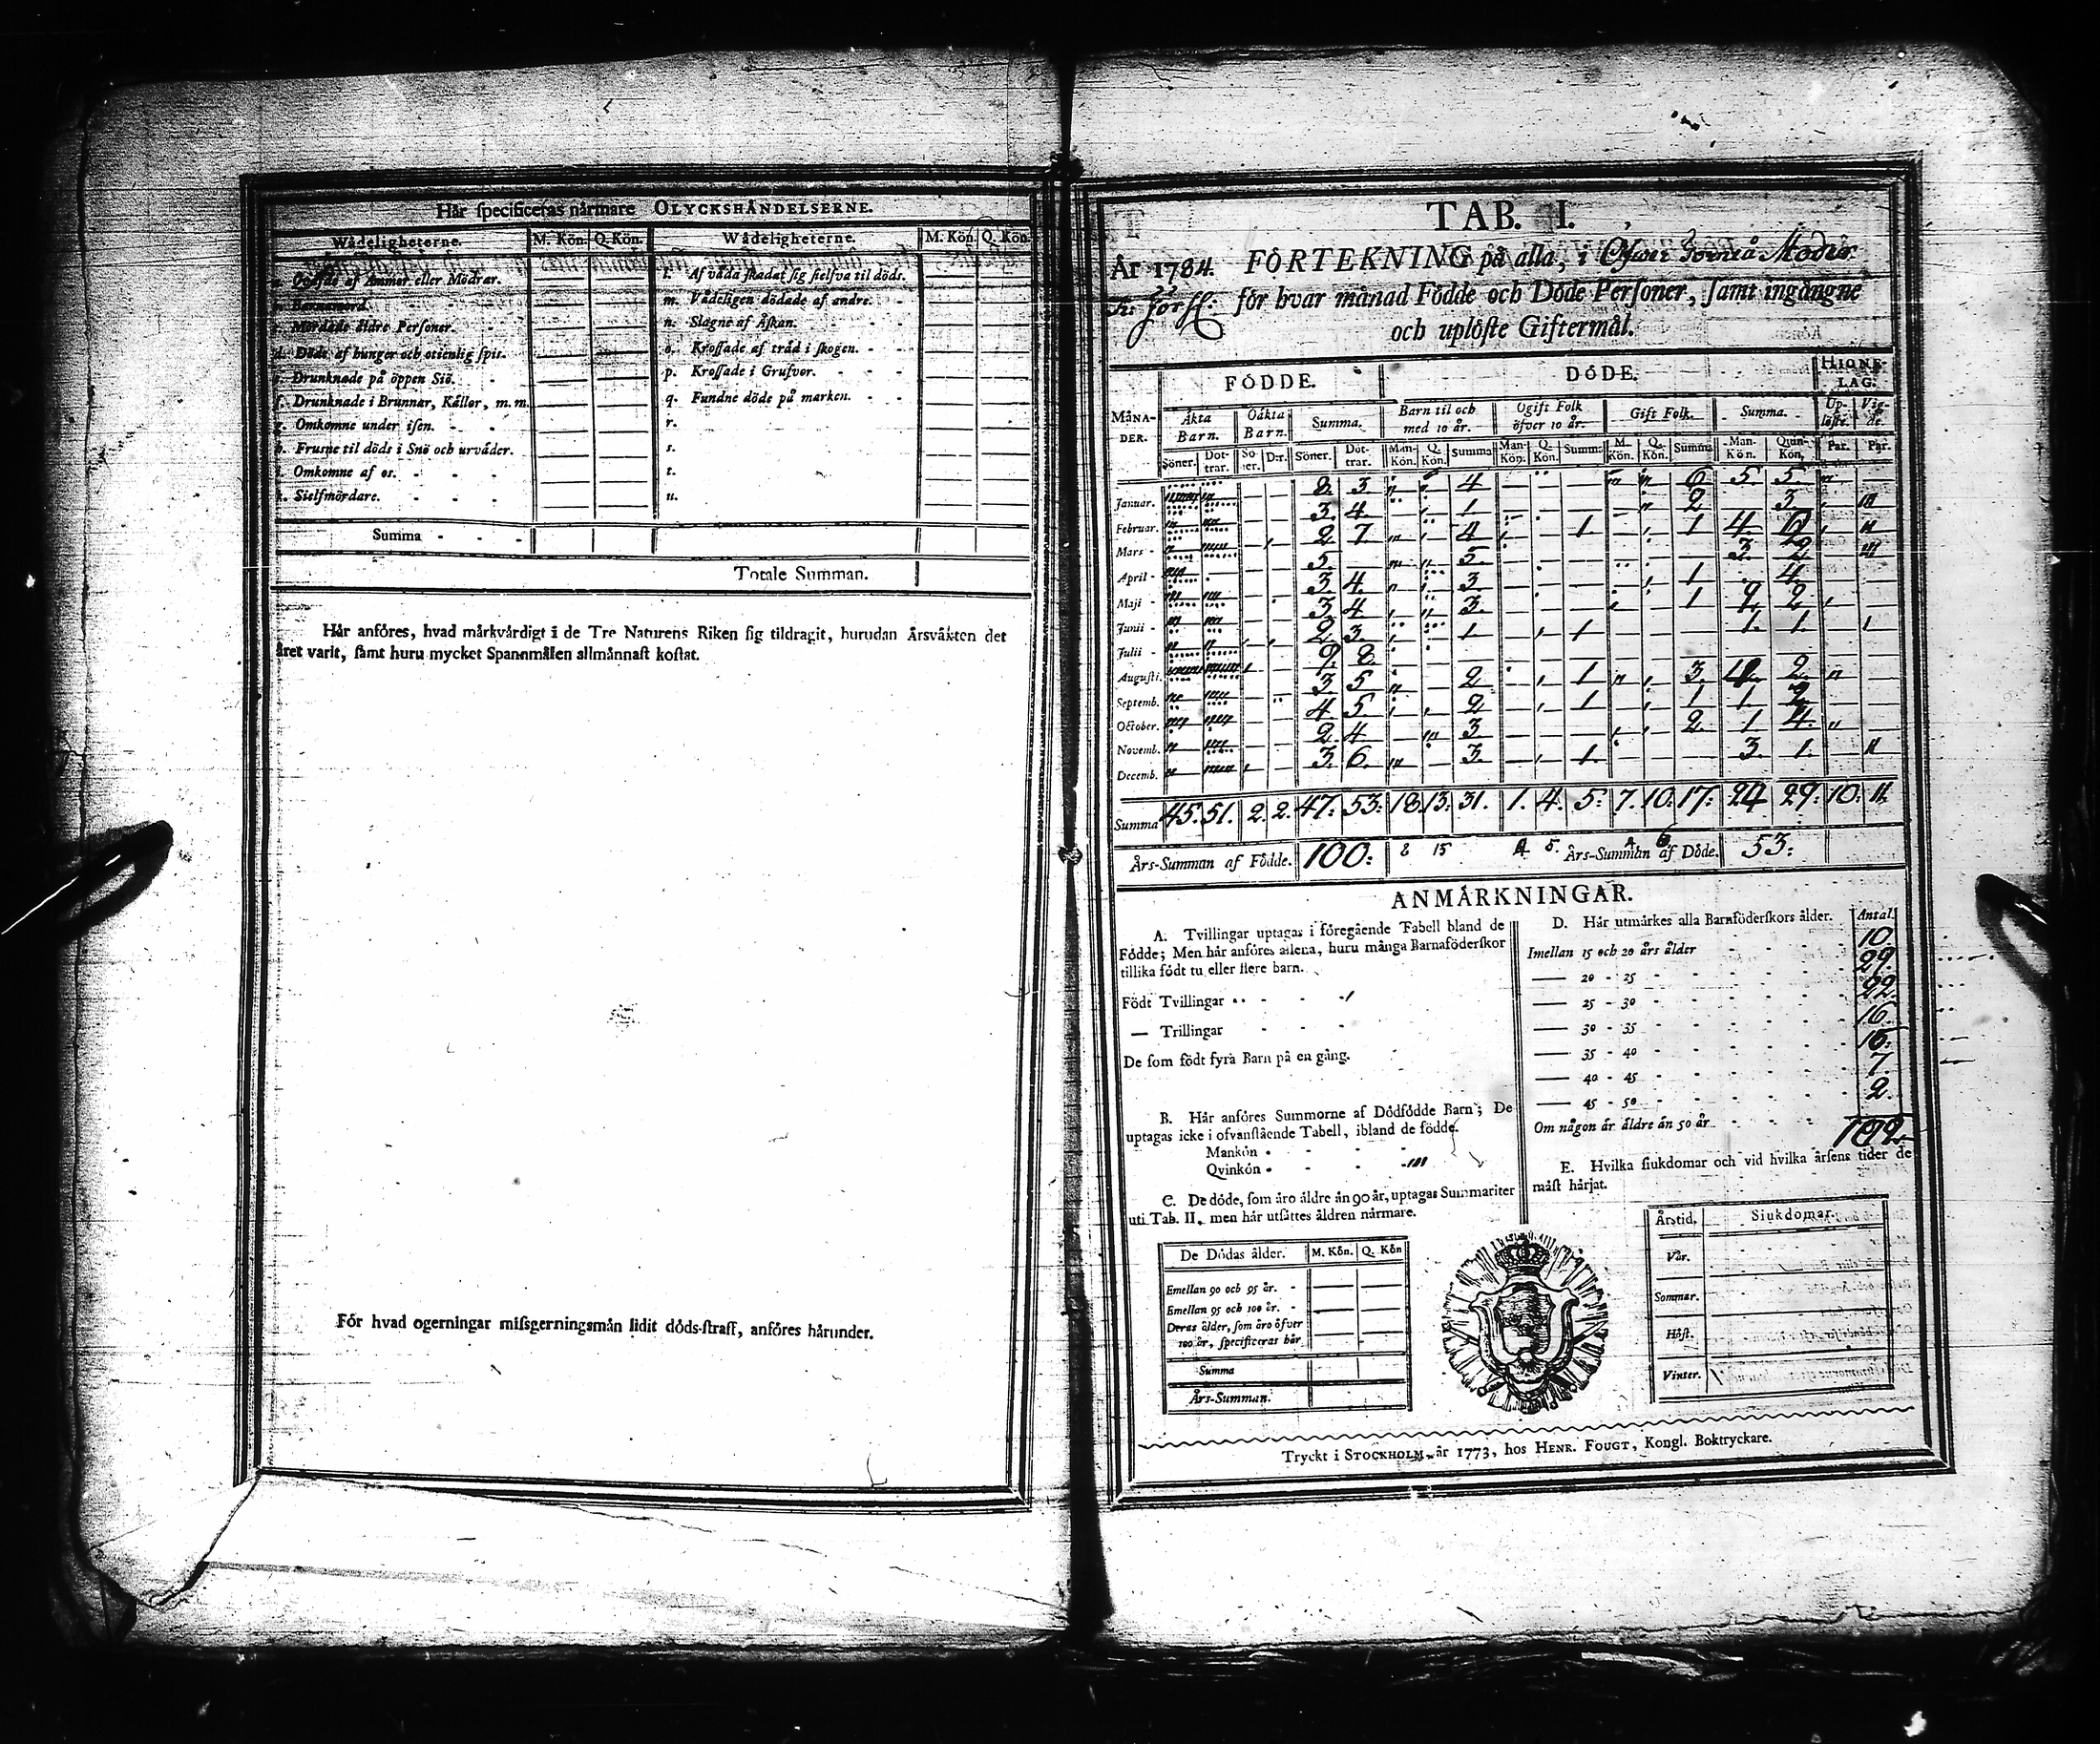 Hår specificeras nårmare OLYCKSHÅNDELSERNE.
Wådeligheterne. M. Kön. Q. Kön. Wådeligheterne. M. Kön. Q. Kön.
af Ammor eller Mödrar. l. Af våda skadat sig sielfva til döds.
m. Vådeligen dödade af andre.
Mördade äldre Personer. n. Slagne af Åskan.
d. Döde af hunger och otienlig spis. o. Krossade af träd i skogen.
Drunknade på öppen Siö. p. Krossade i Grufvor.
f. Drunknade i Brunnar, Kållor, m.m. q. Fundne döde på marken.
g. Omkomne under isen. r.
h. Frusne til döds i Snö och urväder. s.
i. Omkomne af os. t.
k. Sielfmördare. u.
Summa
Totale Summan.
Hår anföres, hvad mårkvårdigt i de Tre Naturens Riken sig tildragit, hurudan Årsväxten det
året varit, samt huru mycket Spannmålen allmånnast kostat.
För hvad ogerningar missgerningsmån lidit döds-straff, anföres hårunder.
TAB. I.
År 1784. FÖRTEKNING på alla, i
för hvar månad Födde och Döde Personer, samt ingångne
och uplöste Giftermål.
MÅNADER. FÖDDE. DÖDE. HIONELAG.
Åkta Barn. Oåkta Barn. Summa. Barn til och med 10 år. Ogift Folk öfver 10 år. Gift Folk. Summa. Uplöste. Vigde.
Söner. Dottrar. Söner. D:r. Söner. Dottrar. Man-Kön. Q. Kön. Summa Man-Kön. Q. Kön. Summa M. Kön. Q. Kön. Summa Man-Kön. Quin-Kön. Par. Par.
Januar. 8. 3. 4 6 5. 5.
Februar. 3. 4. 1 2 3.
Mars 2 7. 4 1 1 4 6
April 5. 5. 3. 2
Maji 3 4. 3 1 4.
Junii 3 4 3. 1 2. 2.
Julii 2 3. 1 1 1. 1.
Augusti. 9. 8.
Septemb. 3 5 2 1 3. 2.
October. 4 5 2 1 1 1 2
Novemb. 2 4 3 2. 1 4.
Decemb. 3. 6. 3. 1 3. 1.
Summa 45. 51. 2. 2. 47. 53: 18. 13: 31. 1. 4. 5: 7. 10: 17: 24 29: 10: 11.
Års-Summan af Födde. 100: 8 15 5. 6 Års-Summan af Döde. 53:
ANMÅRKNINGAR.
A. Tvillingar uptagas i föregående Tabell bland de
Födde; Men hår anföres allena, huru många Barnaföderskor
tillika födt tu eller flere barn.
Födt Tvillingar
— Trillingar
De som födt fyra Barn på en gång.
B. Hår anföres Summorne af Dödfödde Barn; De
uptagas icke i ofvanstående Tabell, ibland de födde.
Mankön
Qvinkön
C. De döde, som åro åldre ån 90 år, uptagas Summariter
uti Tab. II. men hår utsåttes åldren nårmare.
De Dödas ålder. M. Kön. Q. Kön
Emellan 90 och 95 år.
Emellan 95 och 100 år.
Deras ålder, som åro öfver
100 år, specificeras hår
Summa
Års-Summan.
D. Hår utmårkes alla Barnföderskors ålder. Antal.
Imellan 15 och 20 års ålder 10.
— 20 - 25 29.
— 25 - 30 22.
— 30 - 35 16.
— 35 - 40
— 40 - 45 7.
— 45 - 50 2.
Om någon år åldre ån 50 år
E. Hvilka siukdomar och vid hvilka årsens tider de
måst hårjat.
Årstid. Siukdomar.
Vår.
Sommar.
Höst.
Vinter.
Tryckt i STOCKHOLM, år 1773, hos HENR. FOUGT, Kongl. Boktryckare.